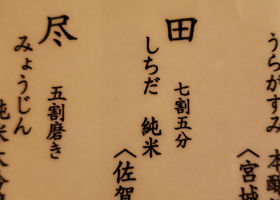 うらがすみ 本醸
〈宮城
田
七割五分
しちだ 純米
〈佐賀
尽
五割磨き
みょうじん
純米大吟